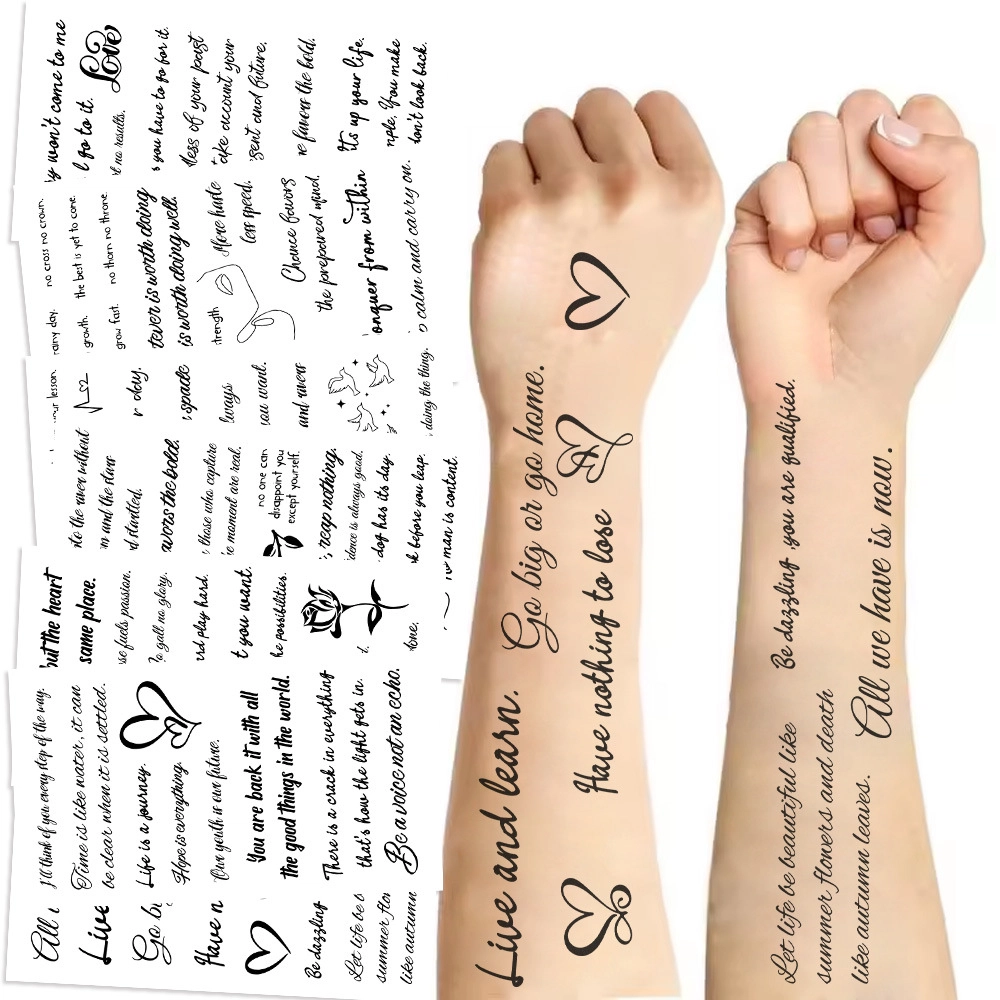 y won't come to me
Love
go to it.
no results.
you have to go for it.
less of your past
take account your
sent and future,
favors the bold.
It's up your life.
you make
don't look back.
no cross no crown.
rainy day.
the best is yet to come
growth.
no thorn no throne
grow fast.
tever is worth doing
is worth doing well.
More haste
less speed.
trength
Chance favors
the prepared mind.
onquer from within
calm and carry on.
ur lesson.
r day.
spade
lways
you want.
and never
doing the thing.
to the river without
and the slow
startled.
avors the bold.
those who capture
moment are real.
no one can
disappoint you
except yourself.
reap nothing.
idence is always good.
dog has its day.
k before you leap.
man is content.
but the heart
same place.
se fuels passion.
gall no glory.
nd play hard.
t you want.
he possibilities.
tone.
I'll think of you every step of the way.
Time is like water, it can
be clear when it is settled.
Life is a journey.
Hope is everything.
Our youth is our future.
You are back it with all
the good things in the world.
There is a crack in everything
that's how the light gets in.
Be a voice not an echo.
All
Live
Go bi
Have n
Be dazzling
Let life be b
summer flo
like autumn
Live and learn.
Go big or go home.
Have nothing to lose
Be dazzling ,you are qualified.
Let life be beautiful like
summer flowers and death
like autumn leaves.
All we have is now.